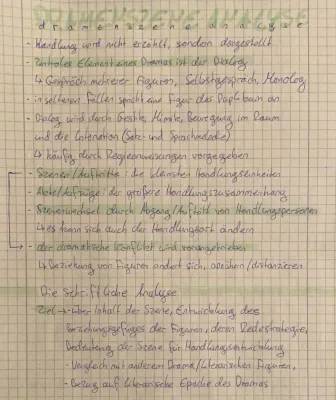 dramenszenenanalyse
- Handlung wird nicht erzählt, sondern dargestellt
- zentrales Element eines Dramas ist der Dialog
↳ Gespräch mehrerer Figuren, Selbstgespräch, Monolog
- in selteren Fällen spricht eine Figur das Publikum an
- Dialog wird durch Gestik, Mimik, Bewegung im Raum
und die Intonation (Satz- und Sprachmelodie)
↳ häufig durch Regieanweisungen vorgegeben
- Szenen/Auftritte: die kleinsten Handlungseinheiten
- Akte/Aufzüge: der größere Handlungszusammenhang
- Szenenwechsel durch Abgang/Auftritt von Handlungspersonen
↳ es kann sich auch der Handlungsort ändern
- der dramatische Konflikt wird vorangetrieben
↳ Beziehung von Figuren ändert sich, annähern/distanzieren
Die schriftliche Analyse
Ziel → über Inhalt der Szene, Entwicklung des
Beziehungsgefüges der Figuren, deren Redestrategie,
Bedeutung der Szene für Handlungsentwicklung
- Vergleich mit anderem Drama/literarischen Figuren,
- Bezug auf literarische Epoche des Dramas